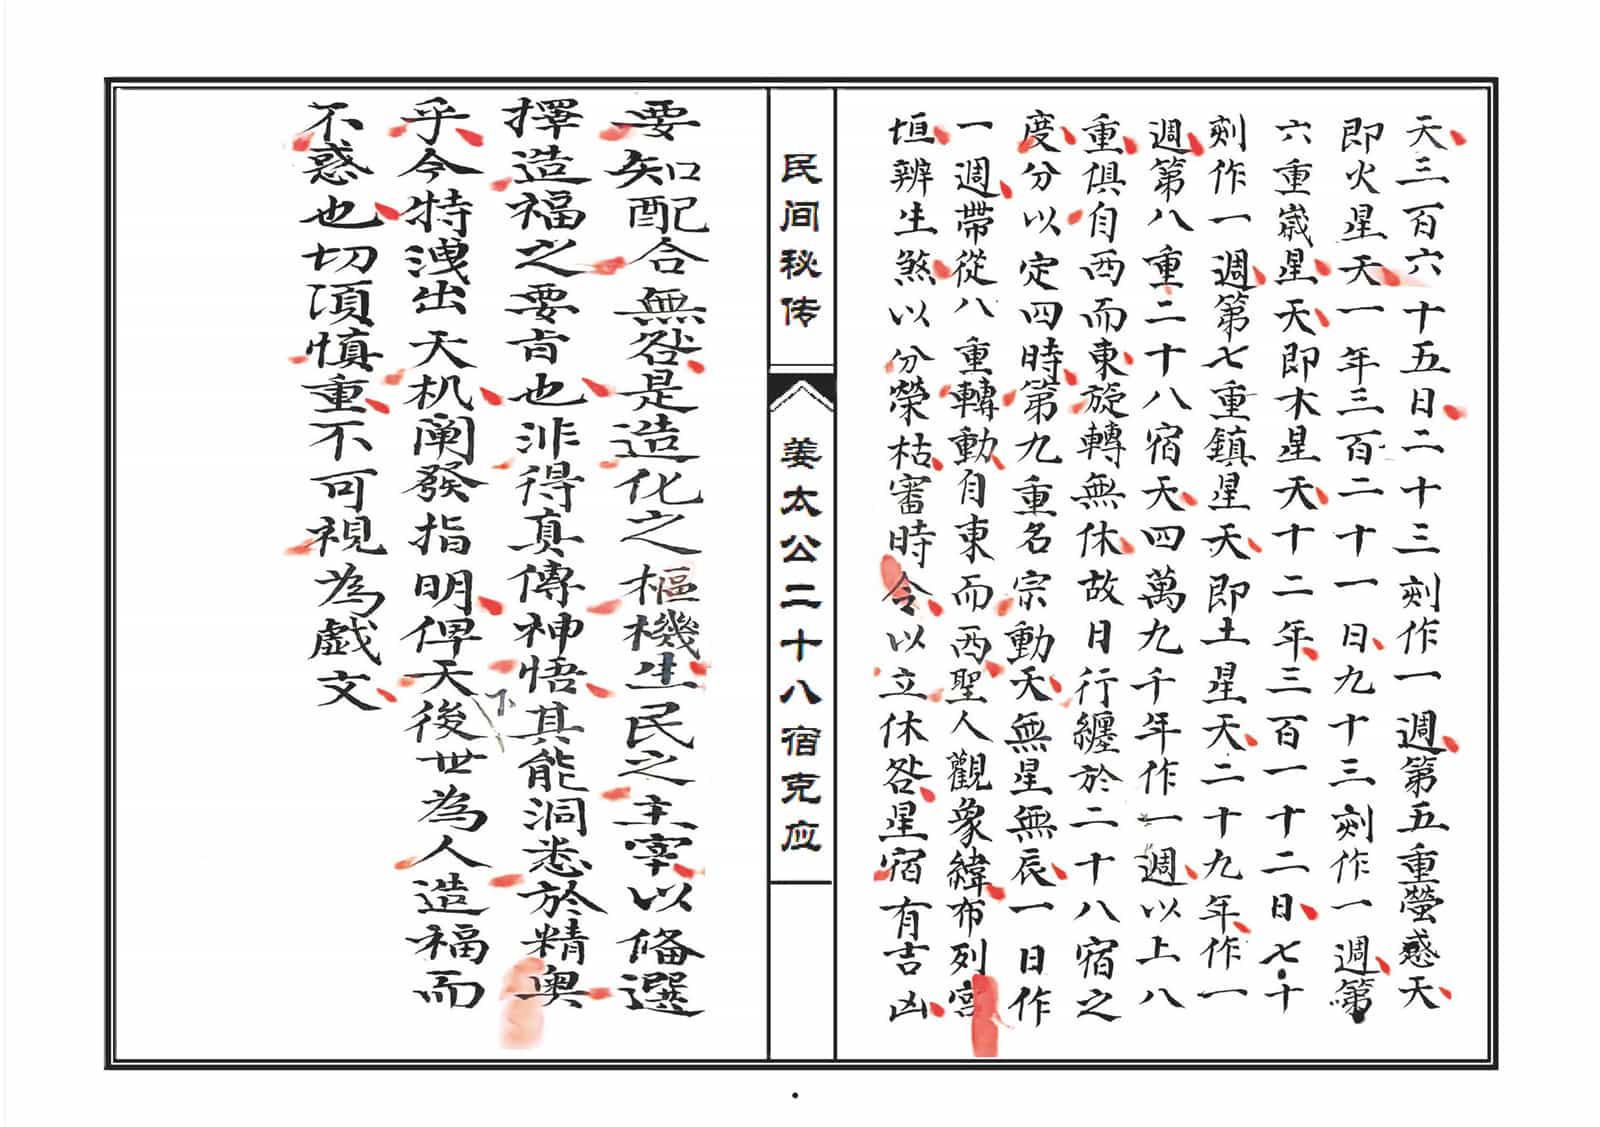 天三百六十五日二十三刻作一週第五重螢惑天
即火星天一年三百二十一日九十三刻作一週第
六重嵗星天即木星天十二年三百一十二日七十
刻作一週第七重鎮星天即土星天二十九年作一
週第八重二十八宿天四萬九千年作一週以上八
重俱自西而東旋轉無休故日行纏於二十八宿之
度分以定四時第九重名宗動天無星無辰一日作
一週帶從八重轉動自東而西聖人觀象緯布列宫
垣辨生煞以分榮枯審時令以立休咎星宿有吉凶
民间秘传
姜太公二十八宿克应
要知配合無咎是造化之樞機生民之主宰以俻選
擇造福之要旨也非得真傳神悟其能洞悉於精奥
乎今特洩出天机阐發指明俾天下後世為人造福而
不惑也切須慎重不可視為戲文